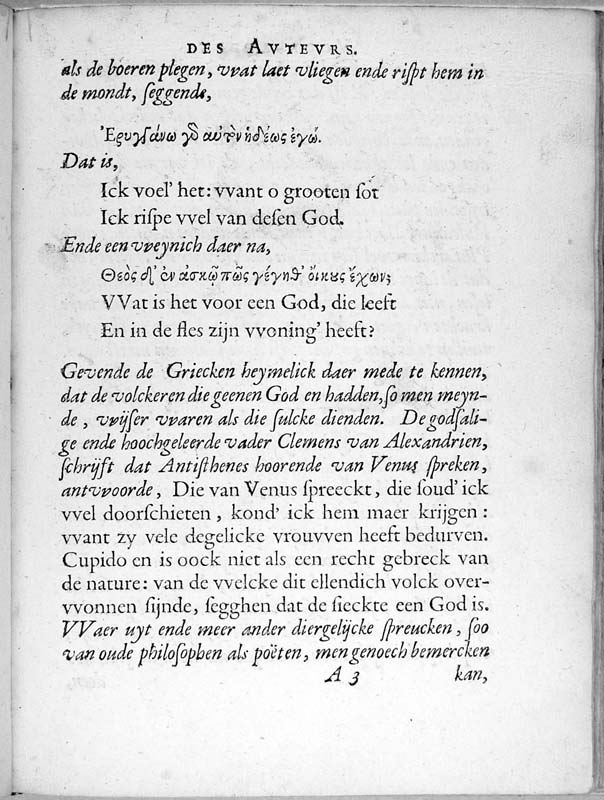 DES AVTEVRS.
als de boeren plegen, vvat laet vliegen ende riſpt hem in
de mondt, ſeggende,
Ἐρυγγάνω γὸ αὐτὸν ἡδέως ἐγώ.
Dat is,
Ick voel' het: vvant o grooten ſot
Ick riſpe vvel van deſen God.
Ende een vveynich daer na,
Θεὸς δ' ἐν ἀσκῷ πῶς γέγηθ' οἴκους ἔχων;
VVat is het voor een God, die leeft
En in de fles zijn vvoning' heeft?
Gevende de Griecken heymelick daer mede te kennen,
dat de volckeren die geenen God en hadden, ſo men meyn-
de, vvijſer vvaren als die ſulcke dienden. De godſali-
ge ende hoochgeleerde vader Clemens van Alexandrien,
ſchrijft dat Antiſthenes hoorende van Venus ſpreken,
antvvoorde, Die van Venus ſpreeckt, die ſoud' ick
vvel doorſchieten, kond' ick hem maer krijgen:
vvant zy vele degelicke vrouvven heeft bedurven.
Cupido en is oock niet als een recht gebreck van
de nature: van de vvelcke dit ellendich volck over-
vvonnen ſijnde, ſegghen dat de ſieckte een God is.
VVaer uyt ende meer ander diergelijcke ſpreucken, ſoo
van oude philoſophen als poëten, men genoech bemercken
A 3 kan,